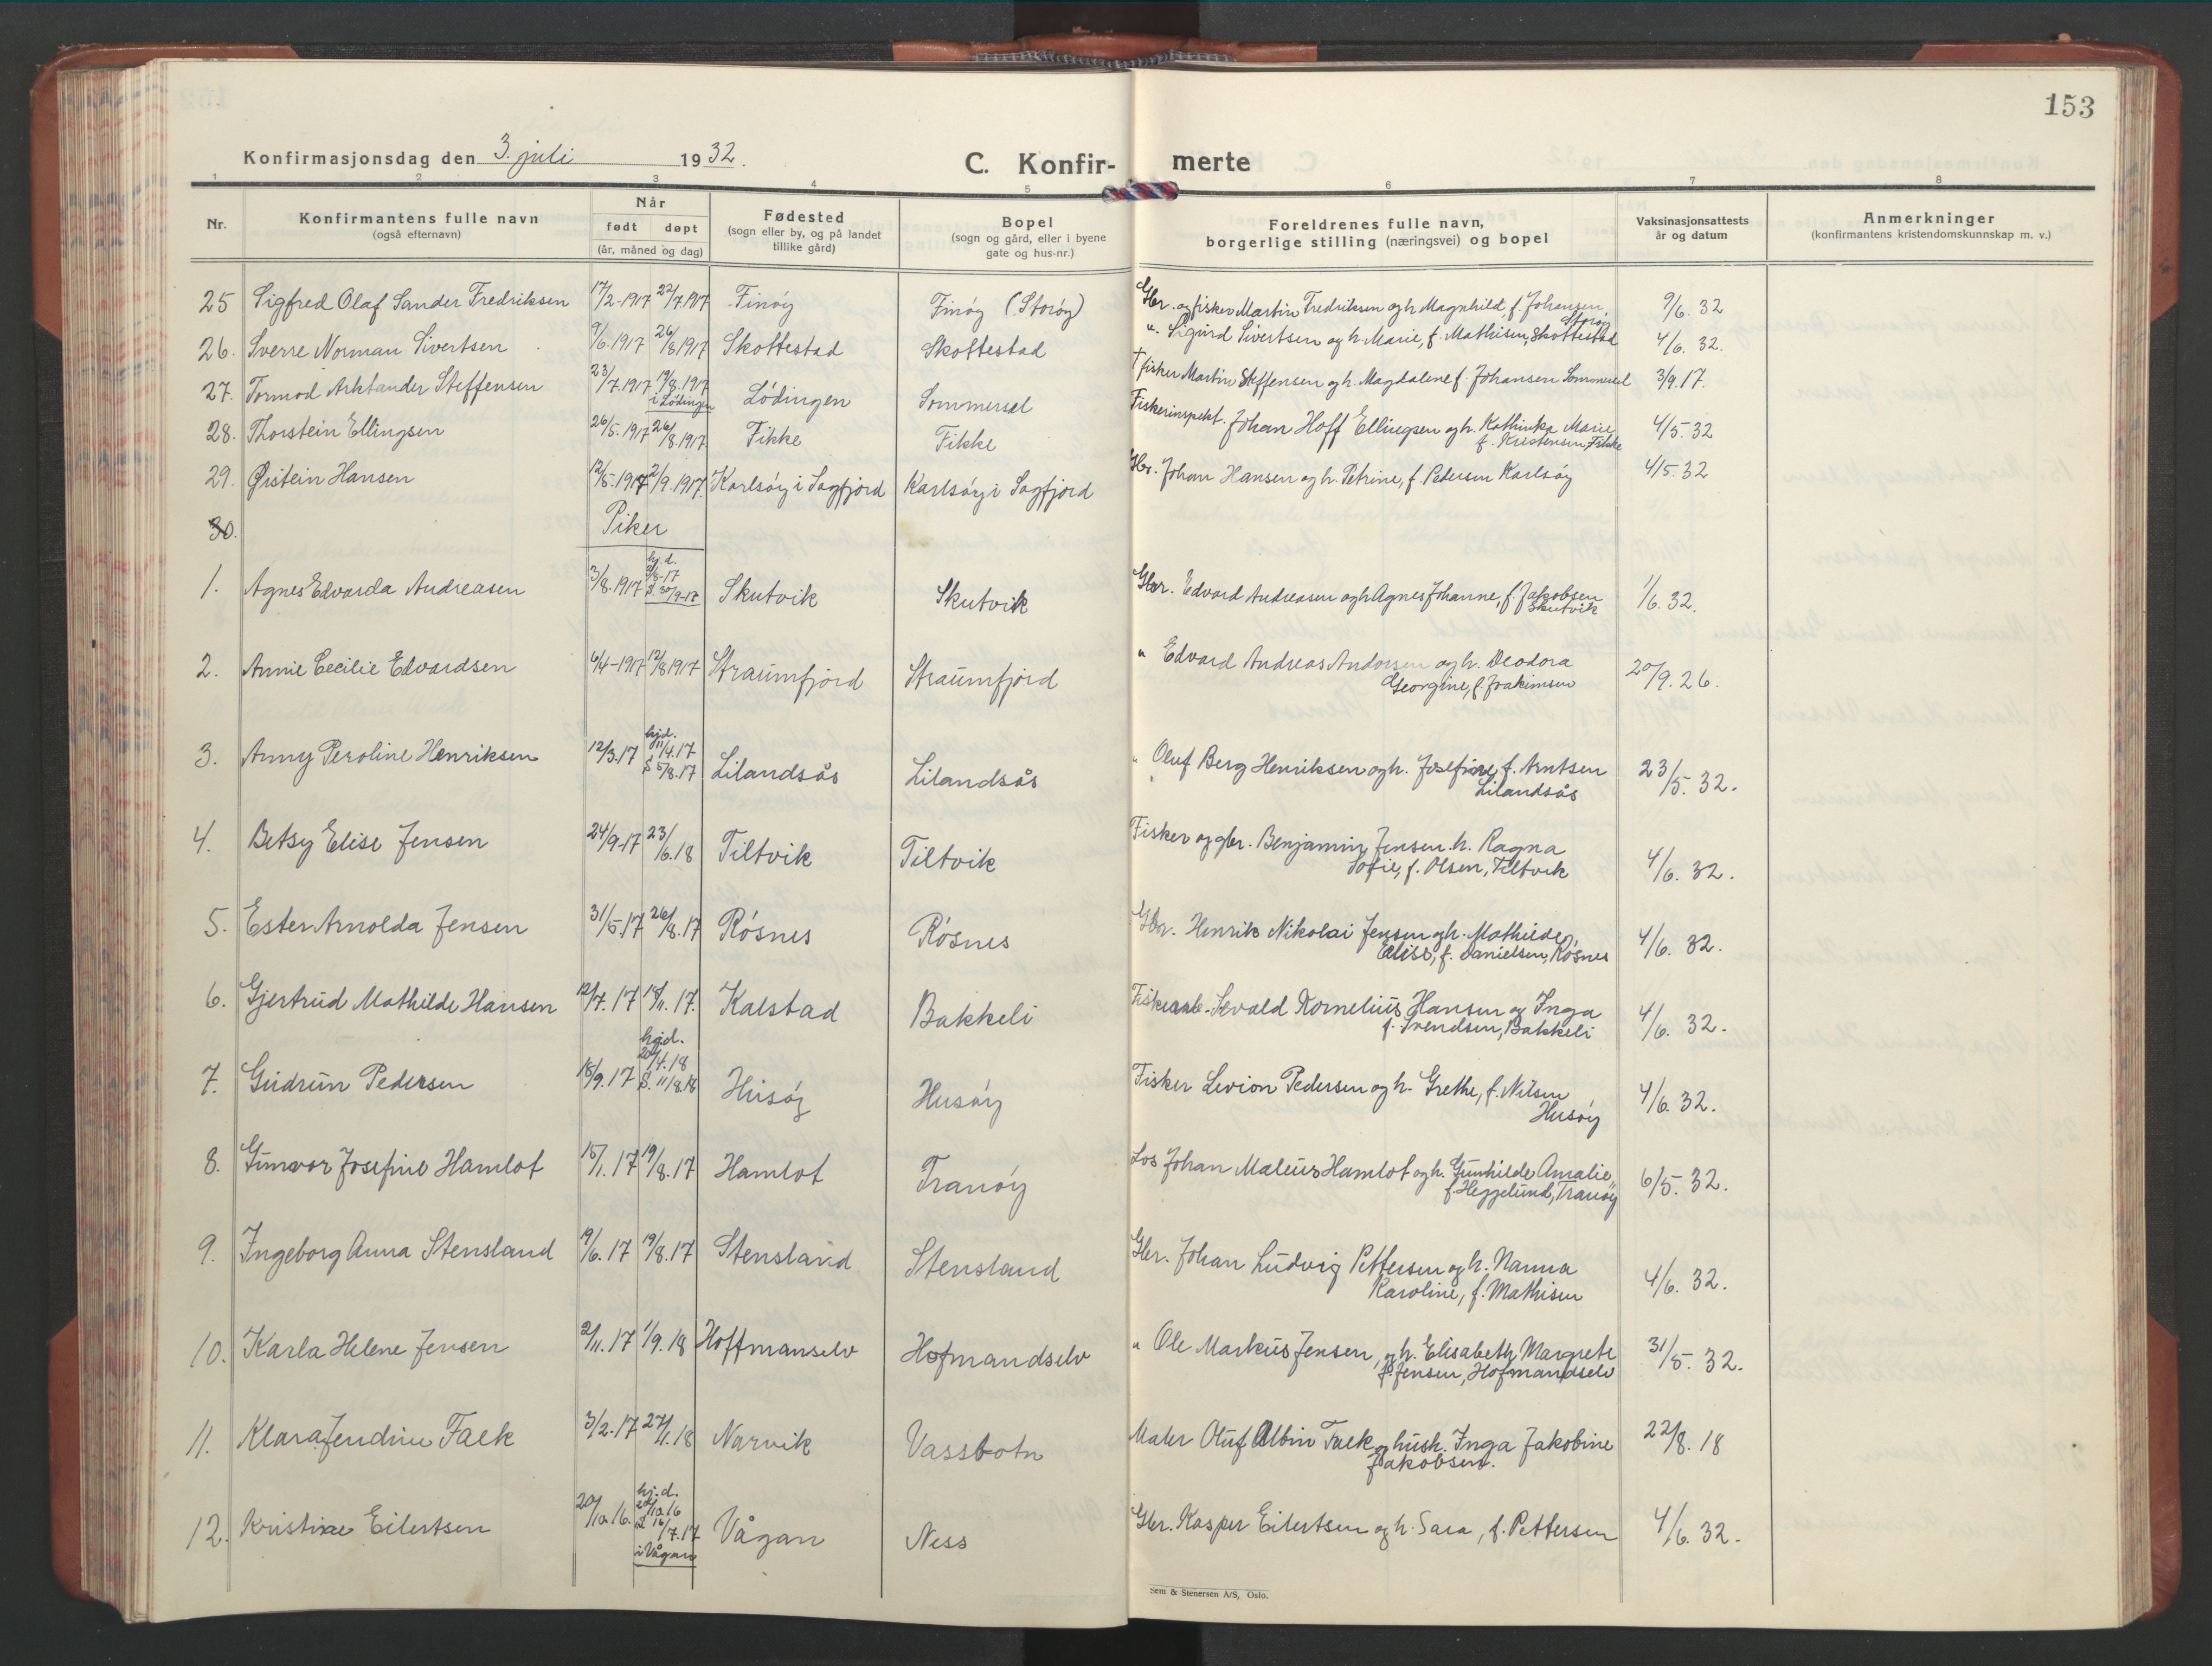 153
Konfirmasjonsdag den 3. juli 1932.
C. Konfir- merte
1 2 3 4 5 6 7 8
Nr.
Konfirmantens fulle navn
(også efternavn)
Når
født døpt
(år, måned og dag)
Fødested
(sogn eller by, og på landet
tillike gård)
Bopel
(sogn og gård, eller i byene
gate og hus-nr.)
Foreldrenes fulle navn,
borgerlige stilling (næringsvei) og bopel
Vaksinasjonsattests
år og datum
Anmerkninger
(konfirmantens kristendomskunnskap m. v.)
25 Sigfred Olaf Sander Fredriksen 17/2-1917 22/7.1917 Finöy Finöy (Storöy) Gbr. og fisker Martin Fredriksen og h. Magnhild, f. Johansen, 9/6. 32
Storöy
26. Sverre Norman Sivertsen 9/6.1917 26/8.1917 Skottestad Skottestad " Sigurd Sivertsen og h. Marie, f. Mathisen, Skottestad 4/6. 32.
27. Tormod Arktander Steffensen 23/7.1917 19/8.1917 Lödingen Sommersel † fisker Martin Steffensen og h. Magdalene f. Johansen Sommersel 3/9.17.
i Lödingen
28. Thorstein Ellingsen 26/5.1917 26/8.1917 Fikke Fikke Fiskerinspekt. Johan Hoff Ellingsen og h. Kathinka Marie 4/5.32
f. Kristensen, Fikke
29. Øistein Hansen 12/5.1917 2/9.1917 Karlsöy i Sagfjord Karlsöy i Sagfjord Gbr. Johan Hansen og h. Petrine, f. Pedersen Karlsöy 4/5.32
30.
Piker
hj.d.
1. Agnes Edvarda Andreasen 3/8.1917 3/8-17 Skutvik Skutvik Gbr. Edvard Andreasen og h. Agnes Johanne, f. Jakobsen 1/6.32.
S. 30/9-17 Skutvik
2. Annie Cecilie Edvardsen 6/4-1917 12/8 1917 Straumfjord Straumfjord " Edvard Andreas Andorsen og h. Deodora 20/9.26.
Georgine, f. Joakimsen
hjd.
3. Anny Peroline Henriksen 12/3.17 11/4.17 Lilandsås Lilandsås " Oluf Berg Henriksen og h. Josefine, f. Arntsen 23/5. 32.
S 5/8.17 Lilandsås
4. Betsy Elise Jensen 24/9-17 23/6.18 Tiltvik Tiltvik Fisker og gbr. Benjamin Jensen. h. Ragna 4/6. 32.
Sofie, f. Olsen, Tiltvik
5. Ester Arnolda Jensen 31/5.17 26/8.17 Rösnes Rösnes Gbr. Henrik Nikolai Jensen og h. Mathilde 4/6. 32.
Elise, f. Danielsen, Rösnes
6. Gjertrud Mathilde Hansen 12/7.17 18/11.17. Kalstad Bakkeli Fiskearb. Sevald Kornelius Hansen og Inga 4/6. 32.
f. Svendsen, Bakkeli
hjd.
7. Gudrun Pedersen 18/9.17 20/4.18 Husöy Husöy Fisker Levion Pedersen og h. Grethe, f. Nilsen 4/6. 32.
S. 11/8.18 Husöy
8. Gunvor Josefine Hamlot 15/1.17 19/8.17 Hamlot Tranöy Los Johan Maleus Hamlot og h. Gunhilde Amalie 6/5. 32.
f. Heggelund, Tranöy
9. Ingeborg Anna Stensland 19/6.17 19/8.17 Stensland Stensland Gbr. Johan Ludvig Pettersen og h. Nanna 4/6. 32.
Karoline, f. Mathisen
10. Karla Helene Jensen 2/11.17 1/9.18 Hoffmanselv Hofmandselv " Ole Markus Jensen, og h. Elisabeth Margrete 31/5. 32.
f. Jensen, Hofmandselv
11. Klara Jendine Falk 3/2.17 27/1.18 Narvik Vassbotn Maler Oluf Albin Falk og hush. Inga Jakobine 22/8. 18
Jakobsen.
hj.d.
12. Kristine Eilertsen 20/10.16. 20/10.16 Vågan Ness Gbr. Kasper Eilertsen og h. Sara, f. Pettersen 4/6. 32.
S 16/7.17
i Vågan
Sem & Stenersen A/S, Oslo.